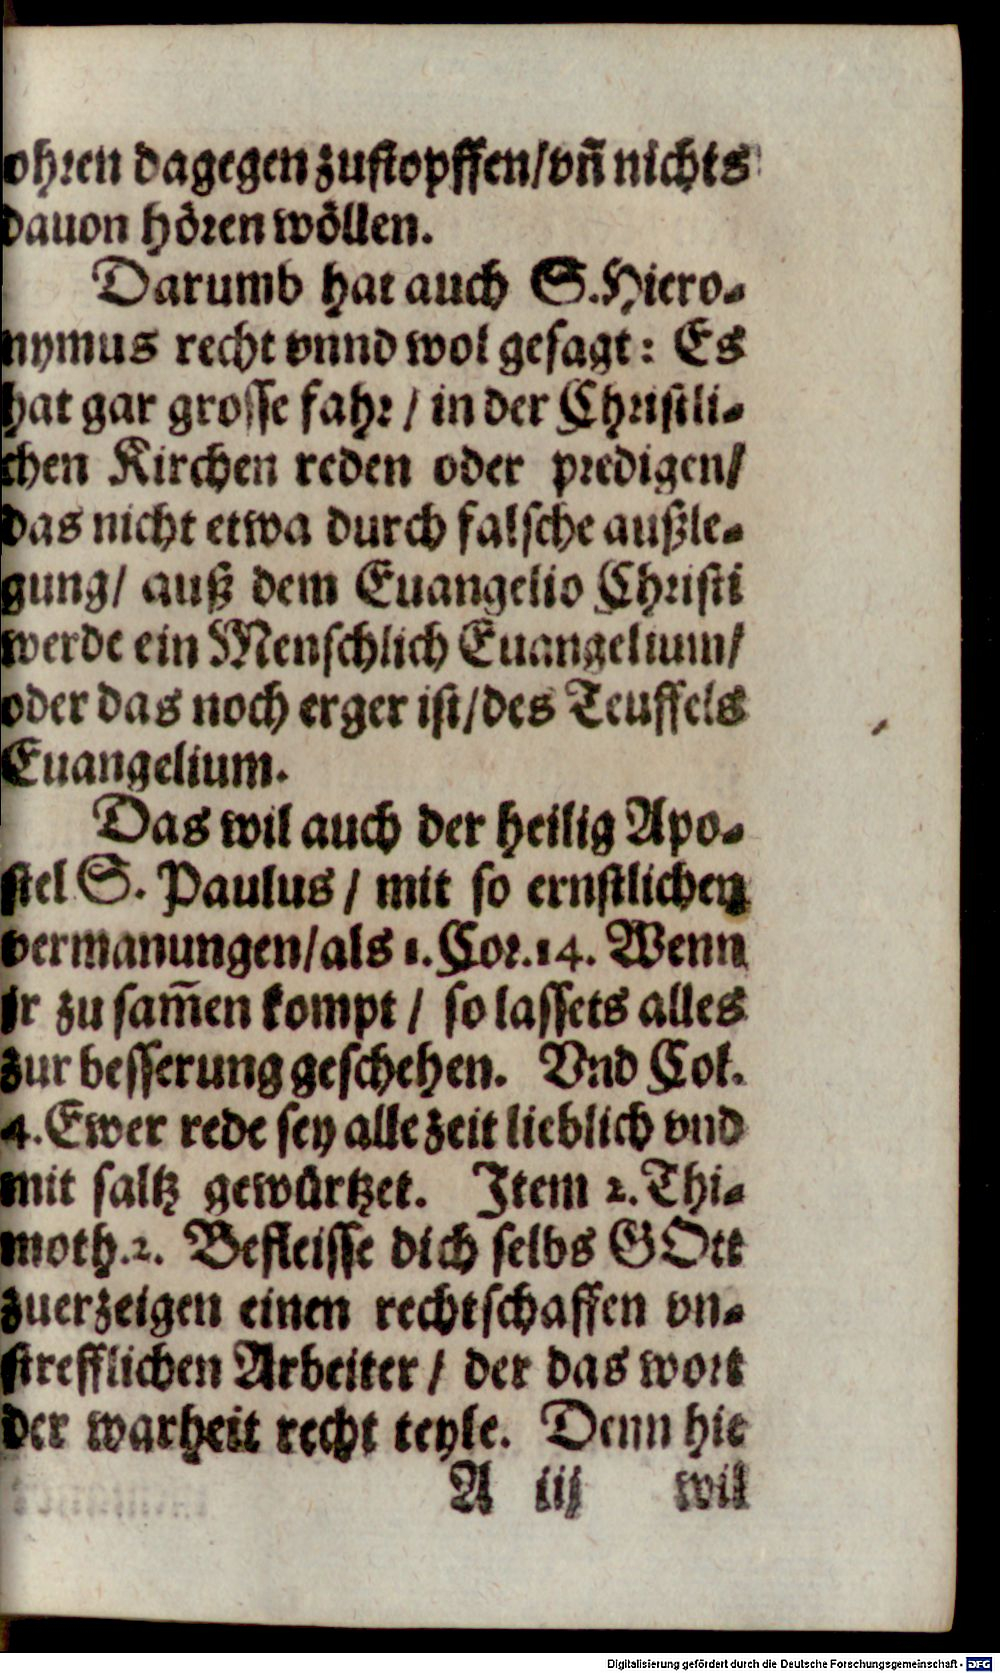 ohren dagegen zustopffen/vñ nichts
dauon hören wöllen.
Darumb hat auch S. Hiero-
nymus recht vnnd wol gesagt: Es
hat gar grosse fahr / in der Christli-
chen Kirchen reden oder predigen/
das nicht etwa durch falsche außle-
gung/ auß dem Euangelio Christi
werde ein Menschlich Euangelium/
oder das noch erger ist/des Teuffels
Euangelium.
Das wil auch der heilig Apo-
stel S. Paulus / mit so ernstlichen
vermanungen/als 1. Cor. 14. Wenn
jr zu sam̄en kompt / so lassets alles
zur besserung geschehen. Vnd Col.
4. Ewer rede sey alle zeit lieblich vnd
mit saltz gewürtzet. Item 2. Thi-
moth. 2. Befleisse dich selbs GOtt
zuerzeigen einen rechtschaffen vn-
strefflichen Arbeiter / der das wort
der warheit recht teyle. Denn hie
A iij wil
Digitalisierung gefördert durch die Deutsche Forschungsgemeinschaft - DFG